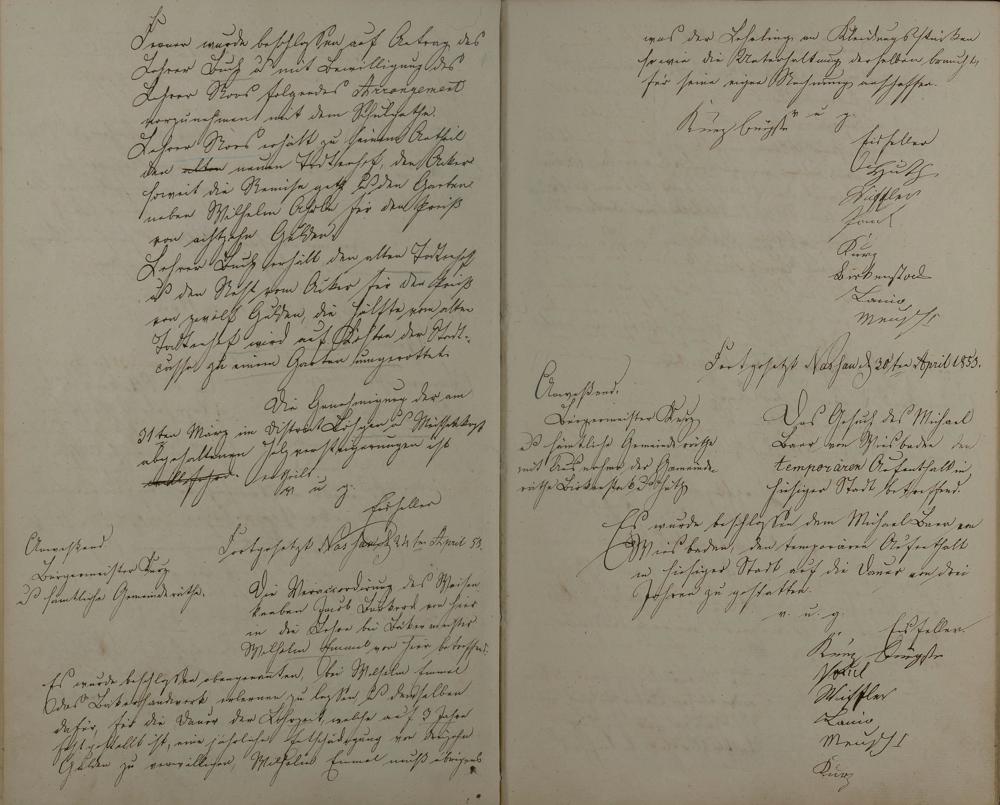 Ferner wurde beschlossen auf Antrag des
Lehrer Buch u mit Bewilligung des
Lehrer Roos folgendes Arrangement
vorzunehmen mit dem Schulgute.
Lehrer Roos erhält zu seinem Antheil
den alten neuen Todtenhof, den Acker
soweit die Remise geht u den Garten
neben Wilhelm für den Preiß
von achtzehn Gulden.
Lehrer Buch erhält den alten Todtenhof
u den Rest vom Acker für den Preiß
von zwölf Gulden, die Hälfte vom alten
Todtenhof wird auf Kosten der Stadt-
casse zu einem Garten umgerottet.
Die Genehmigung der am
31ten März im District u
abgehaltenen Holzversteigerungen ist
ertheilt.
v. u. g.
Eisseller
Anwesend
Bürgermeister Kurz
u sämtliche Gemeinderäthe.
Fortgesetzt April 53.
Die Veraccordirung des Waisen
knaben Jacob von hier
in die Lehre bei Bäckermeister
Wilhelm Emmel von hier betreffend.
Es wurde beschlossen obengenanten, bei Wilhelm Emmel
das Bäckerhandwerk erlernen zu lassen, u demselben
dafür, für die Dauer der Lehrzeit, welche auf 3 Jahre
festgestellt ist, eine jährliche Entschädigung von
Gulden zu verwilligen, Wilhelm Emmel muß übrigens
was der Lehrling an Kleidungsstücken
sowie die Unterhaltung derselben braucht,
für seine eigne Rechnung anschaffen.
v. u. g.
Kurz Bürgstr
Eisseller
Wüssler
Paul
Kurz
Birkenstock
Lanio
Meuscht
Fortgesetzt April 1853.
Anwesend.
Bürgermeister Kurz
u sämtliche Gemeinderäthe
mit Ausnahme der Gemeinde-
räthe Birkenstock u
Das Gesuch des Michael
Baer von Wiesbaden den
temporären Aufenthalt in
hiesiger Stadt betreffend.
Es wurde beschlossen dem Michael Baer von
Wiesbaden, den temporären Aufenthalt
in hiesiger Stadt auf die Dauer von drei
Jahren zu gestatten.
v. u. g.
Eisseller
Kurz Bürgstr
Paul
Wüssler
Lanio
Meuscht
Kurz